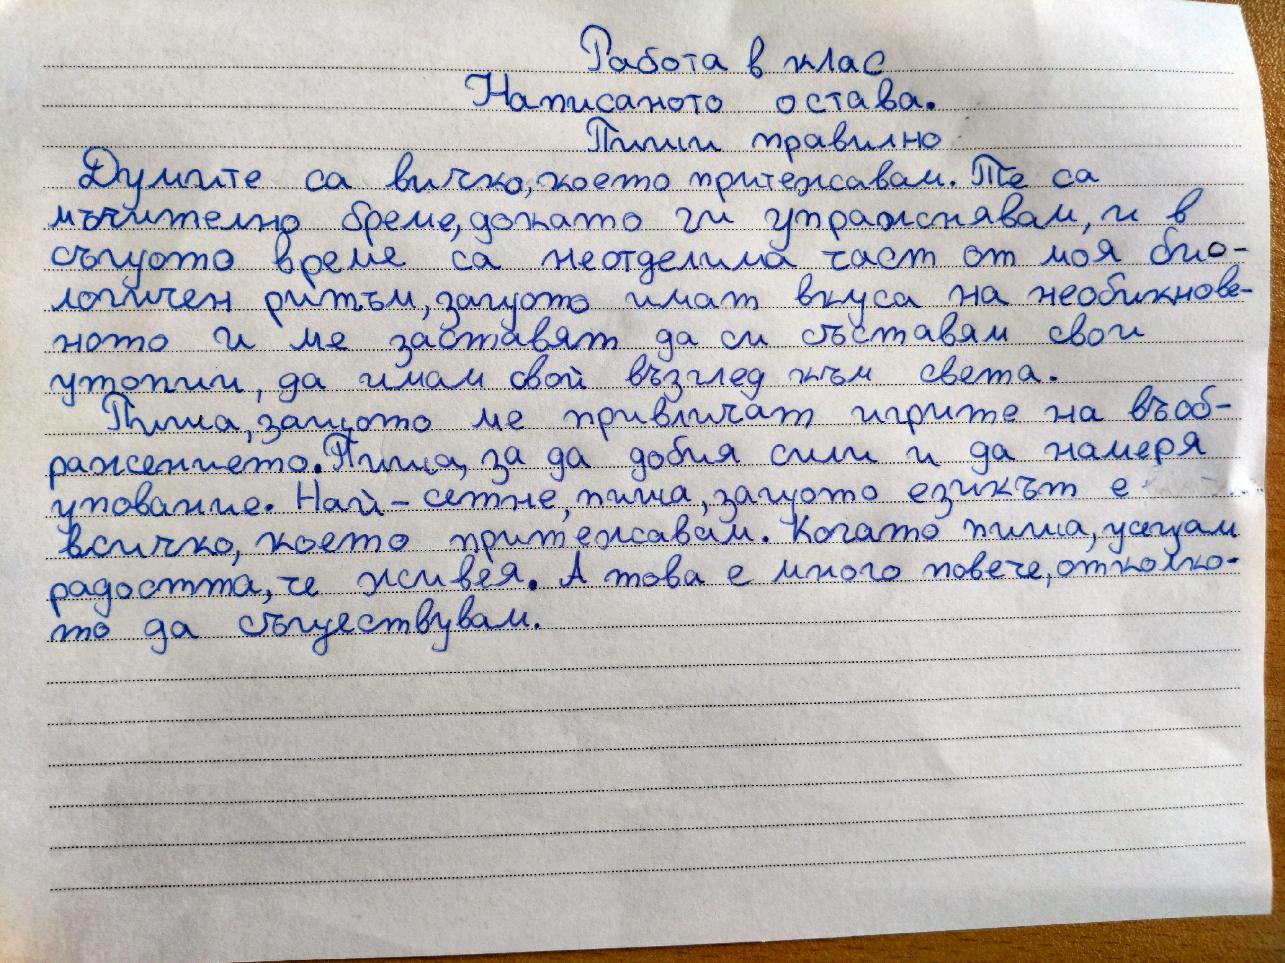 Работа в клас
Написаното остава.
Пиши правилно
Думите са вичко, което притежавам. Те са
мъчително бреме, докато ги упражнявам, и в
същото време са неотделима част от моя био-
логичен ритъм, защото имат вкуса на необикнове-
ното и ме заставят да си съставям свои
утопии, да имам свой възглед към света.
Пиша, защото ме привличат игрите на въоб-
ражението. Пиша, за да добия сили и да намеря
упование. Най-сетне, пиша, защото езикът е
всичко, което притежавам. Когато пиша, усещам
радостта, че живея. А това е много повече, отколко-
то да съществувам.